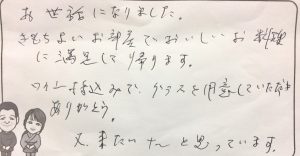 お世話になりました。
きもちよいお部屋でおいしいお料理
に満足して帰ります。
ワイン持込みで、グラスを用意していただき
ありがとう。
又、来たいナ～と思っています。